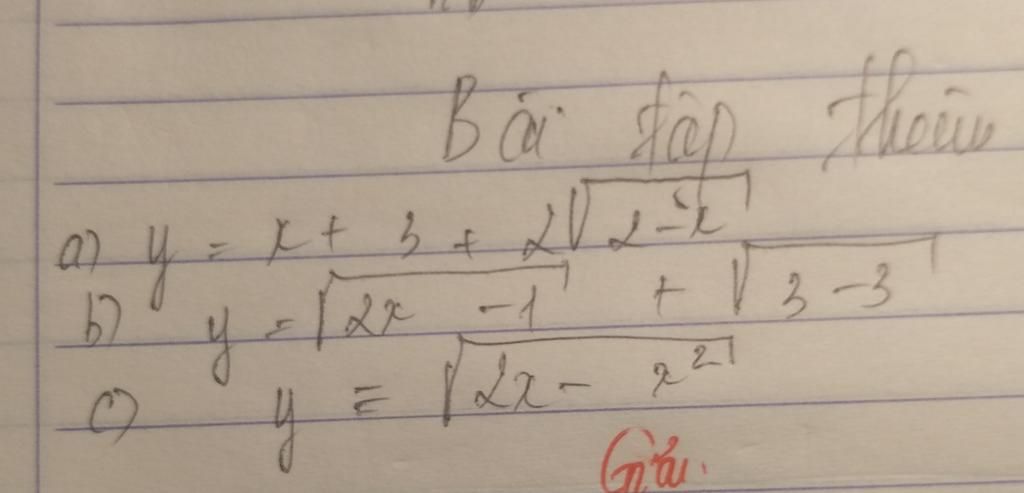 Bài tập thêm
a) y = x + 3 + 2√(2-x)
b) y = √(2x - 1) + √(3 - 3)
c) y = √(2x - x²)
Giải.